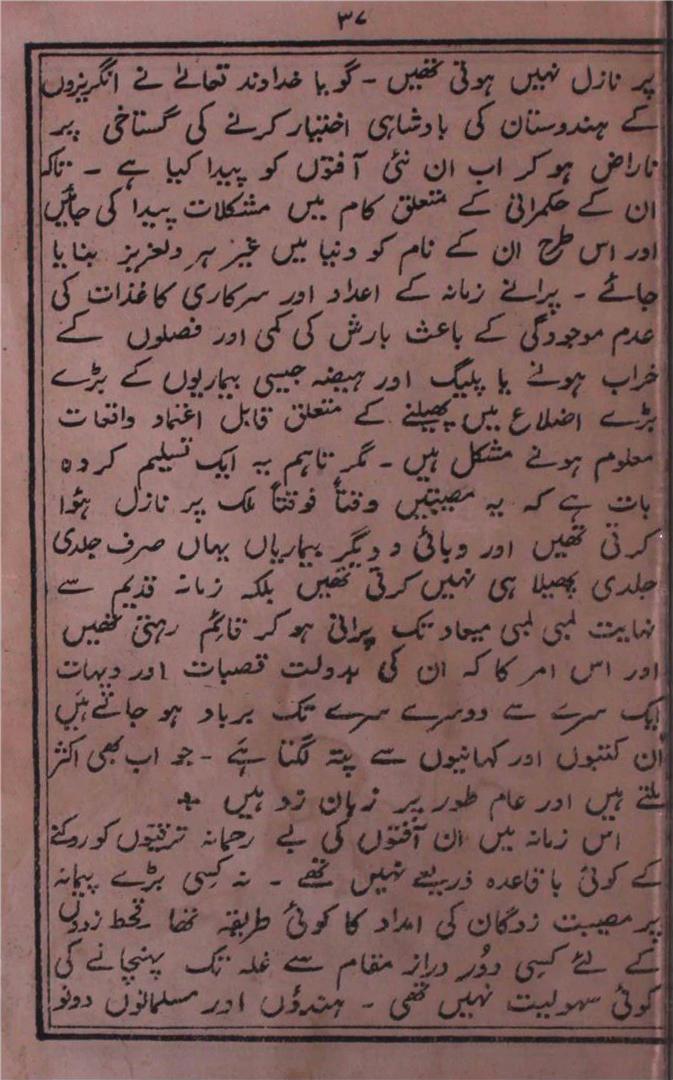 ۳۷
پر نازل نہیں ہوتی تھیں - گویا خداوند تعالےٰ نے انگریزوں
کے ہندوستان کی بادشاہی اختیار کرنے کی گستاخی پر
ناراض ہو کر اب ان نئی آفتوں کو پیدا کیا ہے - تاکہ
ان کے حکمرانی کے متعلق کام میں مشکلات پیدا کی جائیں
اور اس طرح ان کے نام کو دنیا میں غیر ہر دلعزیز بنایا
جائے - پرانے زمانہ کے اعداد اور سرکاری کاغذات کی
عدم موجودگی کے باعث بارش کی کمی اور فصلوں کے
خراب ہونے یا پلیگ اور ہیضہ جیسی بیماریوں کے بڑے
بڑے اضلاع میں پھیلنے کے متعلق قابل اعتماد واقعات
معلوم ہونے مشکل ہیں - مگر تاہم یہ ایک تسلیم کردہ
بات ہے کہ یہ مصیبتیں وقتاً فوقتاً ملک پر نازل ہؤا
کرتی تھیں اور وبائی و دیگر بیماریاں یہاں صرف جلدی
جلدی پھیلا ہی نہیں کرتی تھیں بلکہ زمانہ قدیم سے
نہایت لمبی لمبی میعاد تک پرانی ہو کر قائم رہتی تھیں
اور اس امر کا کہ ان کی بدولت قصبات اور دیہات
ایک سرے سے دوسرے سرے تک برباد ہو جاتے ہیں
ان کتبوں اور کہانیوں سے پتہ لگتا ہے - جو اب بھی اکثر
ملتے ہیں اور عام طور پر زبان زد ہیں
اس زمانہ میں ان آفتوں کی بے رحمانہ ترقیوں کو روکنے
کے کوئی باقاعدہ ذریعے نہیں تھے - نہ کسی بڑے پیمانہ
پر مصیبت زدگان کی امداد کا کوئی طریقہ تھا قحط زدوں
کے لئے کسی دور دراز مقام سے غلہ تک پہنچانے کی
کوئی سہولیت نہیں تھی - ہندؤں اور مسلمانوں دونو